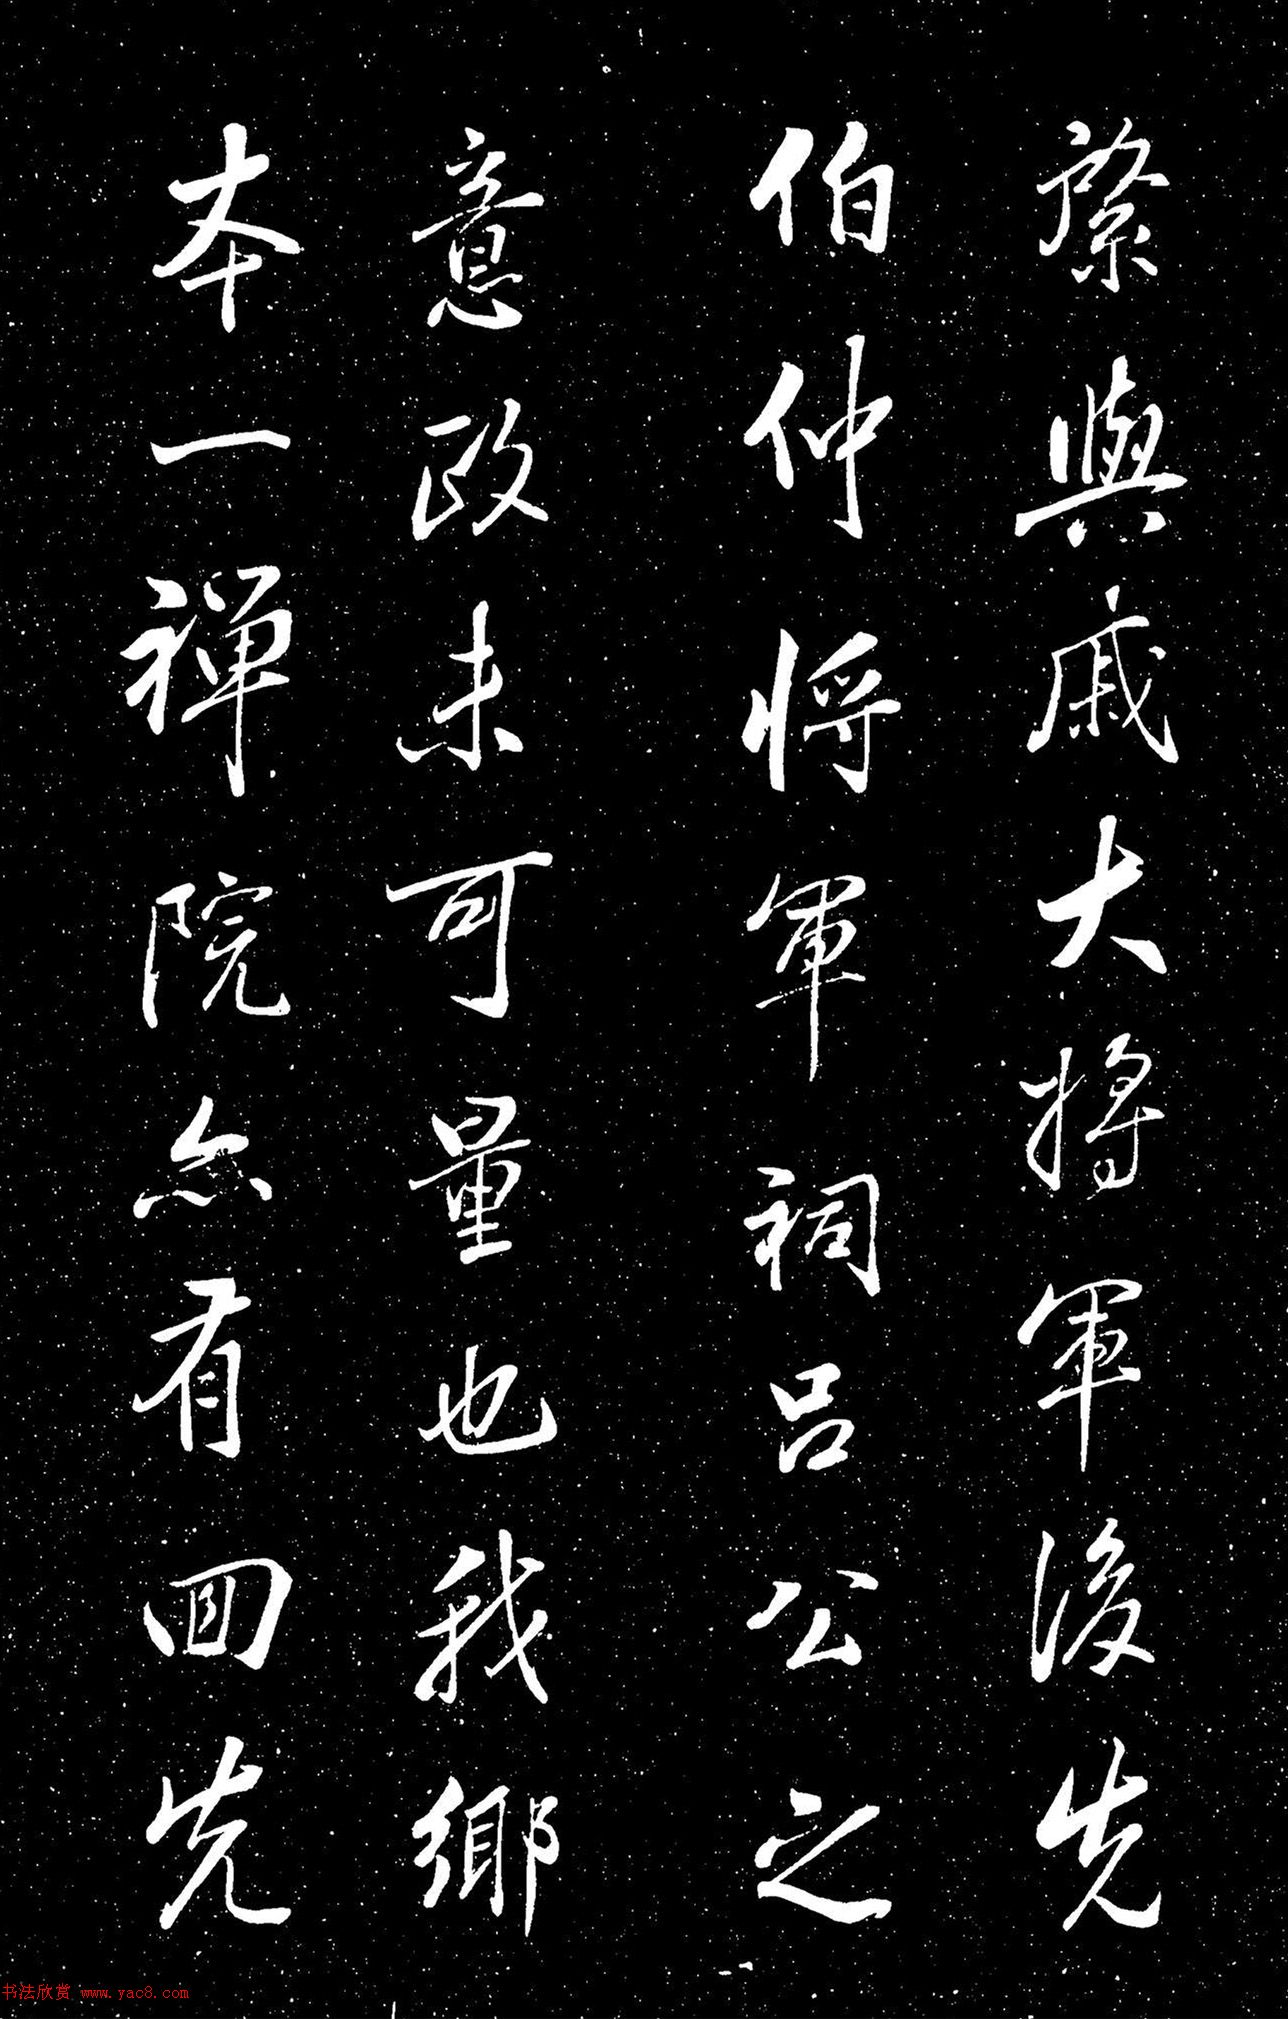 祭與戚大將軍後先
伯仲將軍祠呂公之
意政未可量也我鄉
本一禅院亦有回先
书法欣赏 www.yac8.com